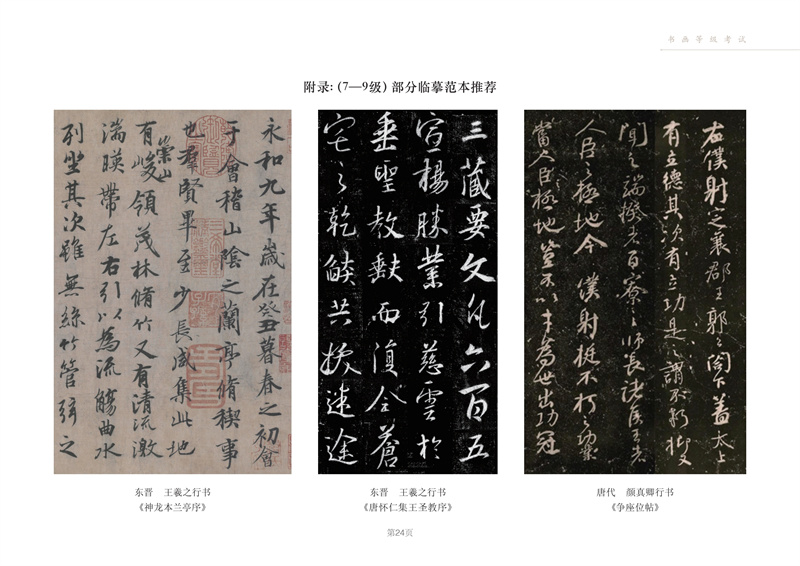 书画等级考试
附录：（7—9级）部分临摹范本推荐
永和九年歲在癸丑暮春之初會
于會稽山陰之蘭亭脩稧事
也羣賢畢至少長咸集此地
有崇山峻領茂林脩竹又有清流激
湍暎帶左右引以為流觴曲水
列坐其次雖無絲竹管弦之
三藏要文凡六百五
宣揚勝業引慈雲於
垂聖教缺而復全蒼
宅之乾燄共拔迷途
右僕射定襄郡王郭公閣下蓋太上
有立德其次有立功是之謂不朽抑又
聞之端揆者百寮之師長諸侯王者
人臣之極地今僕射挺不朽之功業
當人臣極地豈不以才為世出功冠
东晋 王羲之行书
《神龙本兰亭序》
东晋 王羲之行书
《唐怀仁集王圣教序》
唐代 颜真卿行书
《争座位帖》
第24页